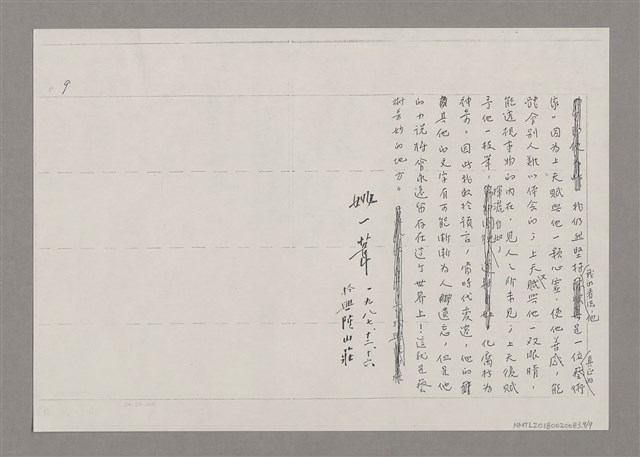 9
我們無堅持我的看法，他是一位真正的藝術
家。因為上天賦與他一顆心靈，使他善感，能
體會別人難以体会的；上天又賦與他一双眼睛，
能透視事物的內在，見人之所未見；上天復賦
予他一枝筆，揮灑自如，化腐朽為
神奇。因此我敢於預言，當時代变遷，他的
其他的文字有可能漸漸为人遺忘，但是他
的小说將會永遠留存在這个世界上！這就是藝
術美妙的地方。
姚一葦
一九八七、十二、十六
於興隆山莊
NMTL20180020083.9/9